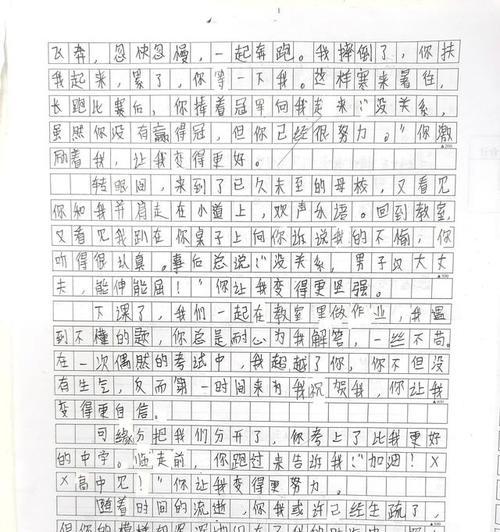 飞奔，忽快忽慢，一起奔跑。我摔倒了，你扶
我起来，累了，你等一下我。这样寒来暑往，
长跑比赛后，你捧着冠军向我走来：“没关系，
虽然你没有赢得冠，但你已经很努力。”你激
励着我，让我变得更好。
转眼间，来到了已久未至的母校，又看见
你和我并肩走在小道上，欢声小语。回到教室，
又看见我趴在你桌子上向你诉说我的不愉，你
听得很认真。事后总说：“没关系，男子汉大丈
夫，能伸能屈！”你让我变得更坚强。
下课了，我们一起在教室里做作业，我遇
到不懂的题，你总是耐心为我解答，一丝不苟。
在一次偶然的考试中，我超越了你，你不但没
有生气，反而第一时间来为我祝贺我，你让我
变得更自信。
可缘分把我们分开了，你考上了比我更好
的中学。临走前，你跑过来告诉我：“加油！X
X高中见！”你让我变得更努力。
随着时间的流逝，你我或许已经生疏了，